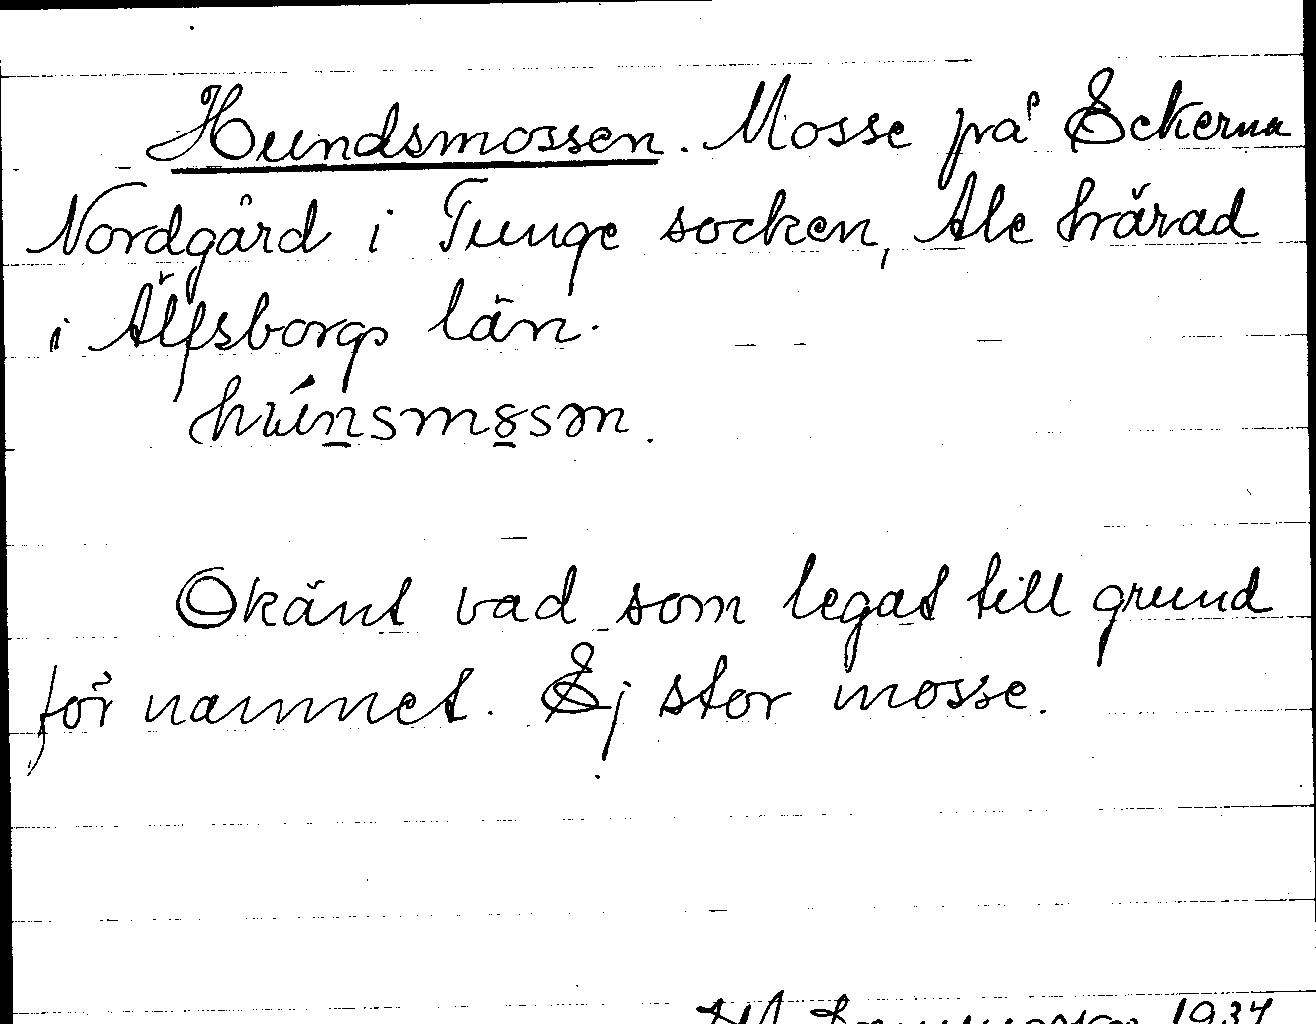 Hundsmossen. Mosse på Eckerna
Nordgård i Tunge socken, Ale härad
i Älfsborgs län.
húnsmɷsən.
Okänt vad som legat till grund
för namnet. Ej stor mosse.
1934